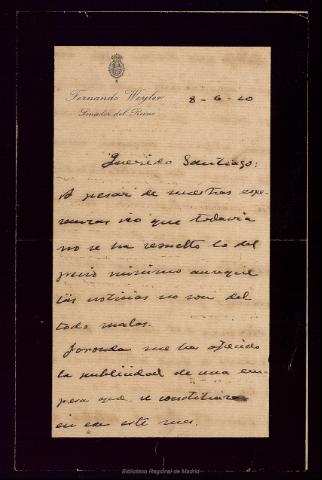 Fernando Weyler
Senador del Reino
8-6-20
Querido Santiago:
A pesar de nuestras espe-
ranzas veo que todavia
no se ha resuelto lo del
precio minimo aunque
las noticias no son del
todo malas.
me ha ofrecido
la publicidad de una em-
presa que se constituira
en este mes.
Biblioteca Regional de Madrid